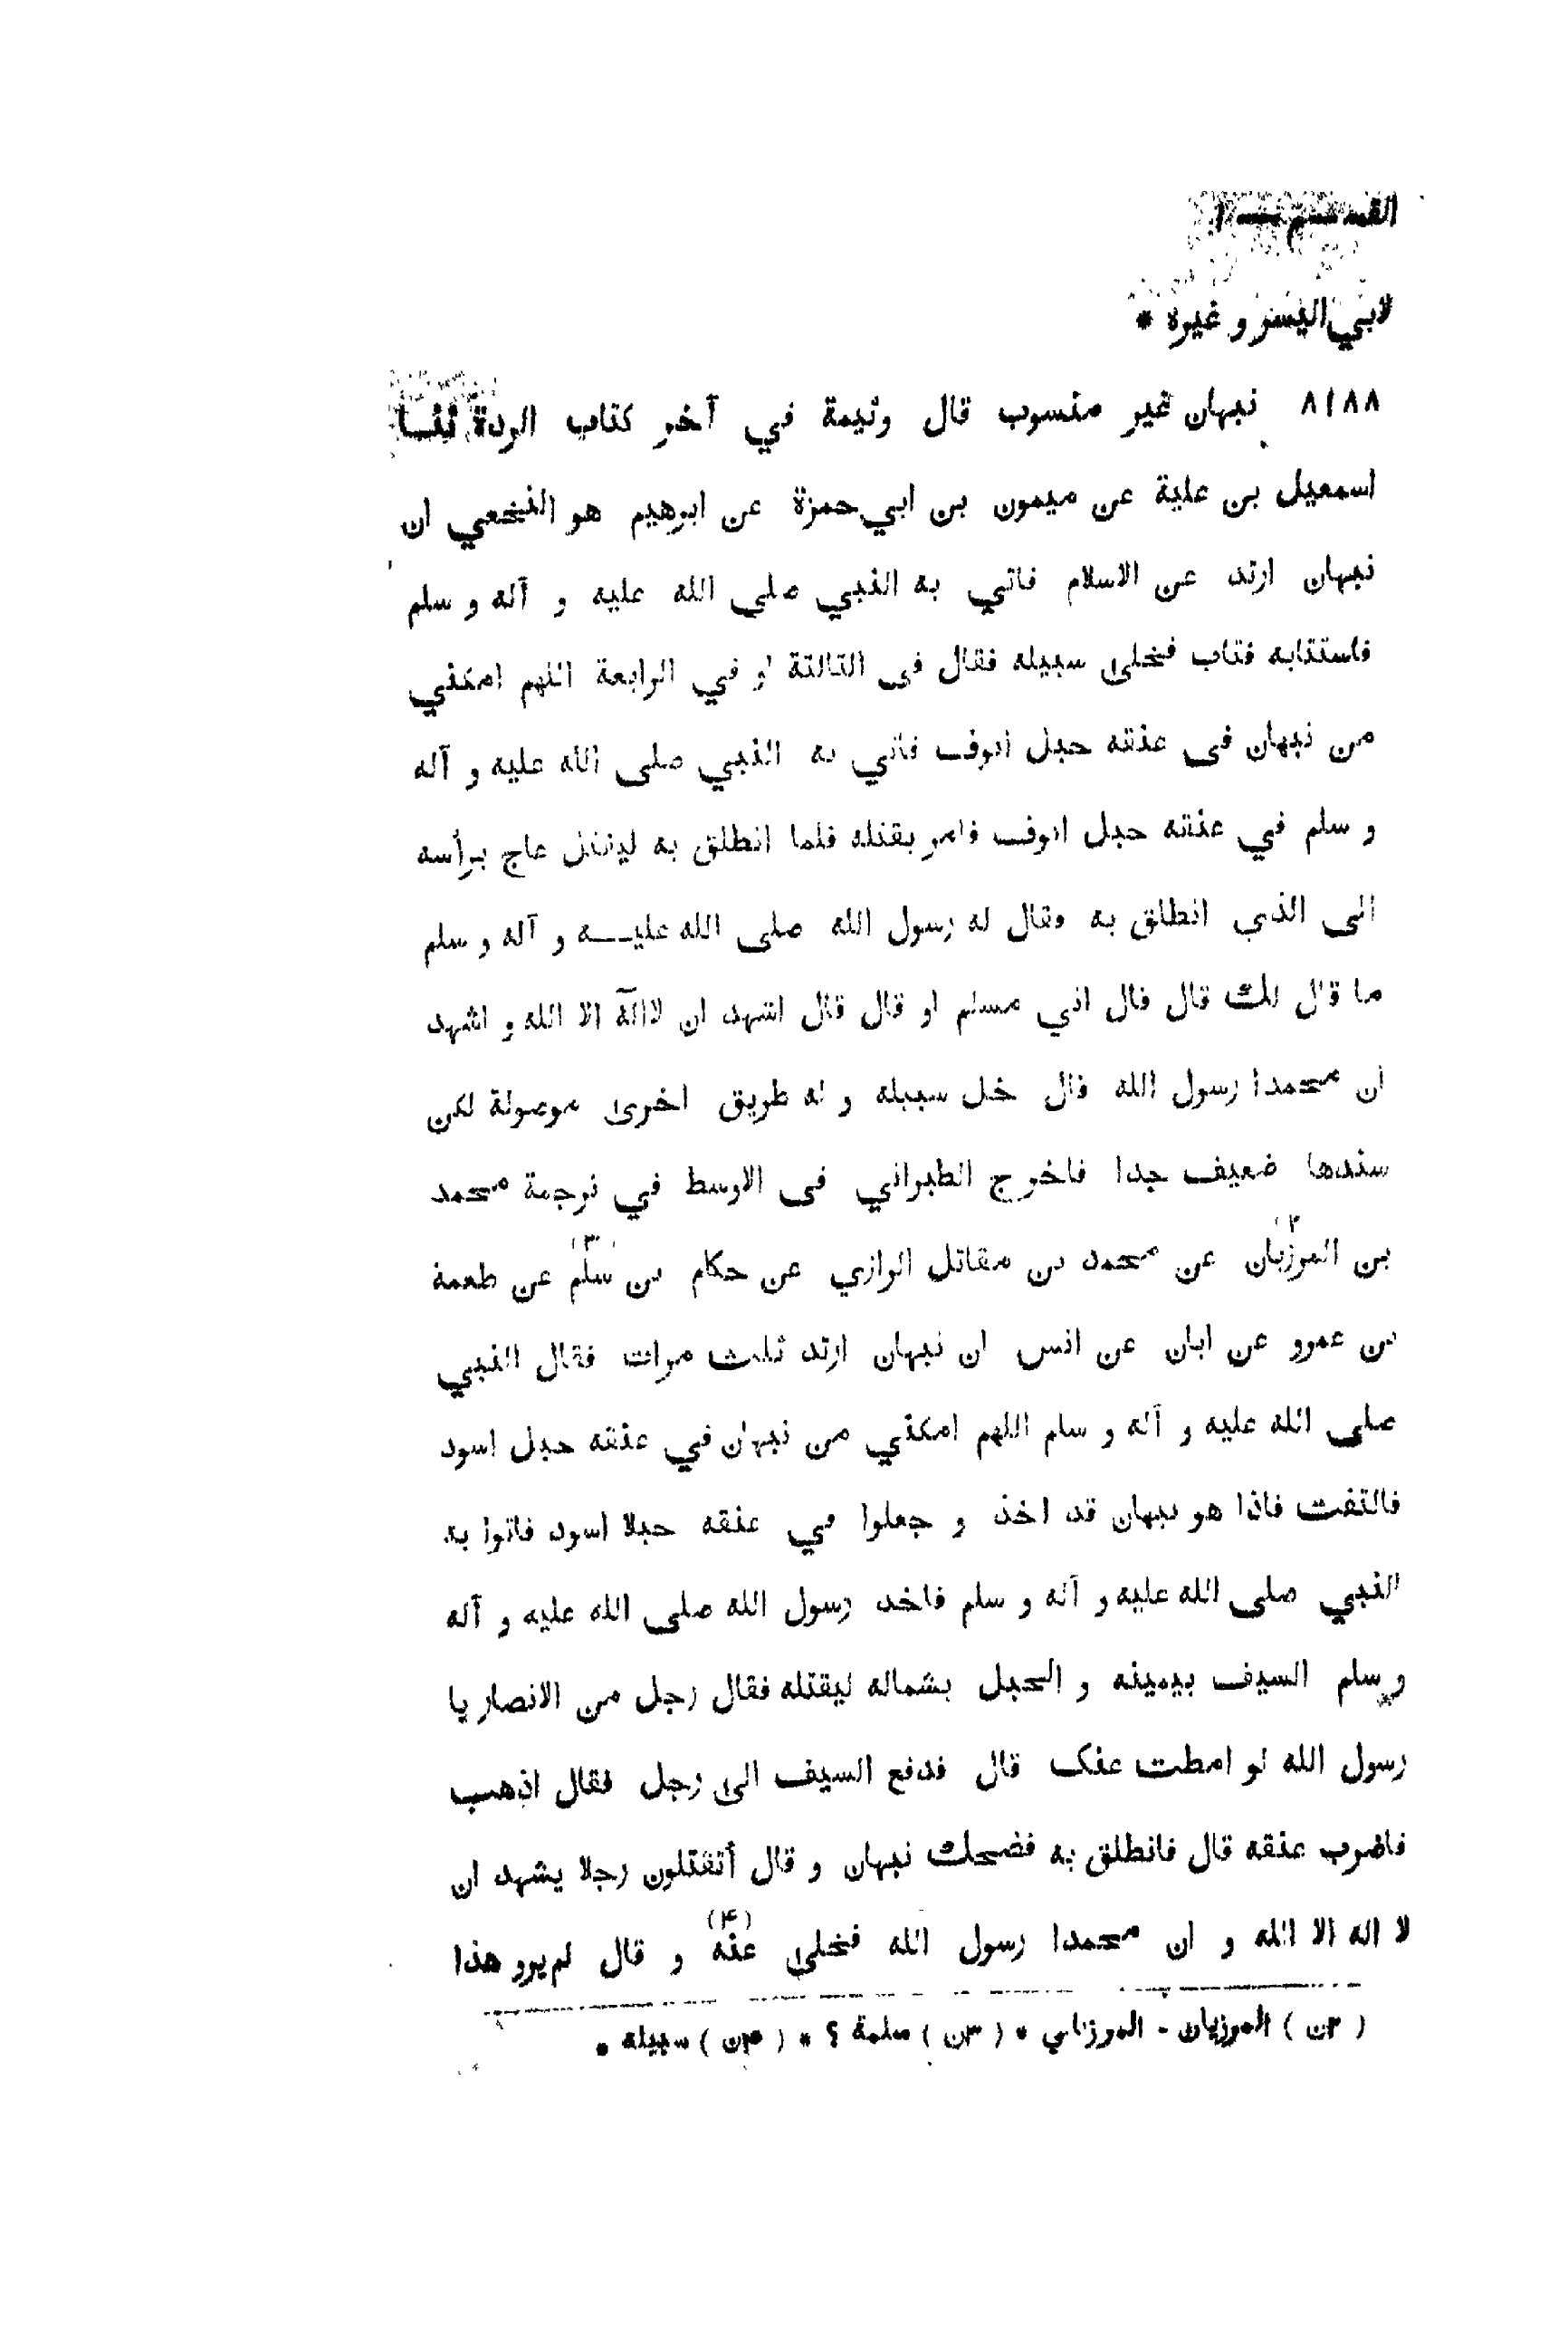 القسم ١
لابي اليسر و غيره *
٨١٨٨ نبهان غير منسوب قال وثيمة في آخر كتاب الردة ثنا
اسمعيل بن علية عن ميمون بن ابي حمزة عن ابرهيم هو النخعي ان
نبهان ارتد عن الاسلام فاتي به النبي صلى الله عليه و آله و سلم
فاستتابه فتاب فخلى سبيله فقال فى الثالثة او في الرابعة اللهم امكني
من نبهان فى عنقه حبل انوف فاتي به النبي صلى الله عليه و آله
و سلم في عنقه حبل انوف فامر بقتله فلما انطلق به ليقتل عاج برأسه
الى الذي انطلق به وقال له رسول الله صلى الله عليه و آله و سلم
ما قال لك قال قال اني مسلم او قال قال اشهد ان لا اله الا الله و اشهد
ان محمدا رسول الله قال خل سبيله و له طريق اخرى موصولة لكن
سندها ضعيف جدا فاخرج الطبراني فى الاوسط في ترجمة محمد
بن المرزبان (٢) عن محمد بن مقاتل الرازي عن حكام بن سلم (٣) عن طعمة
بن عمرو عن ابان عن انس ان نبهان ارتد ثلث مرات فقال النبي
صلى الله عليه و آله و سلم اللهم امكني من نبهان في عنقه حبل اسود
فالتفت فاذا هو نبهان قد اخذ و جعلوا في عنقه حبلا اسود فاتوا به
النبي صلى الله عليه و آله و سلم فاخذ رسول الله صلى الله عليه و آله
و سلم السيف بيمينه و الحبل بشماله ليقتله فقال رجل من الانصار يا
رسول الله لو امطت عنك قال فدفع السيف الى رجل فقال اذهب
فاضرب عنقه قال فانطلق به فضحك نبهان و قال أتقتلون رجلا يشهد ان
لا اله الا الله و ان محمدا رسول الله فخلى عنه (۴) و قال لم يرو هذا
( ٢ن ) المرزبان - المرزباني * ( ٣ن ) سلمة ؟ * ( ۴ن ) سبيله *